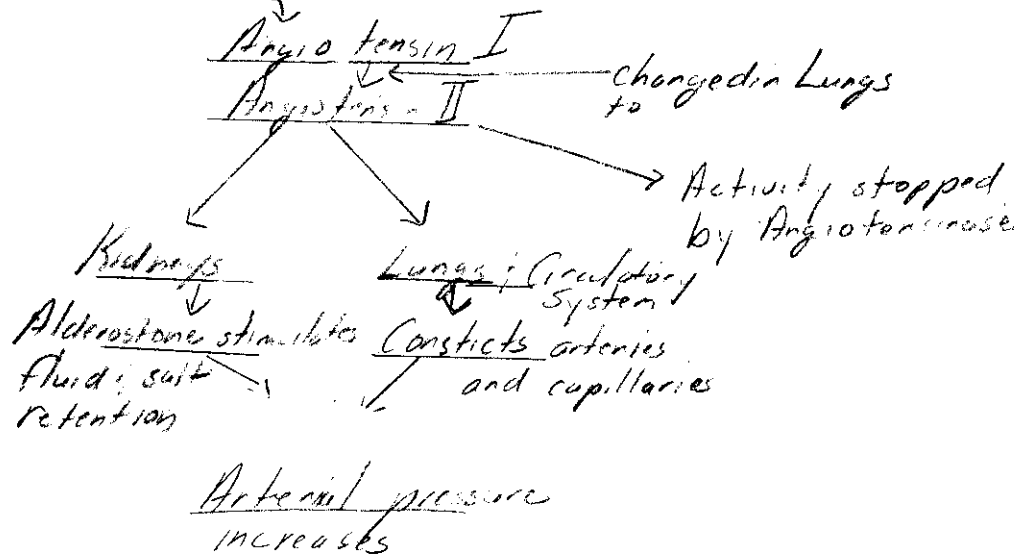 Angiotensin I
Changed in Lungs
to
Angiotensin II
Activity stopped
by Angiotensinase
Kidneys
Lungs; Circulatory
System
Alderostone stimulates
fluid; salt
retention
Consticts arteries
and capillaries
Arterial pressure
increases